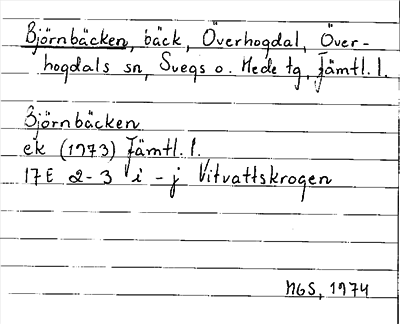 Björnbäcken, bäck, Överhogdal, Över-
hogdals sn, Svegs o. Hede tg, Jämtl. l.
Björnbäcken
ek (1973) Jämtl. l.
17E 2-3 i - j Vitvattskrogen
NGS, 1974